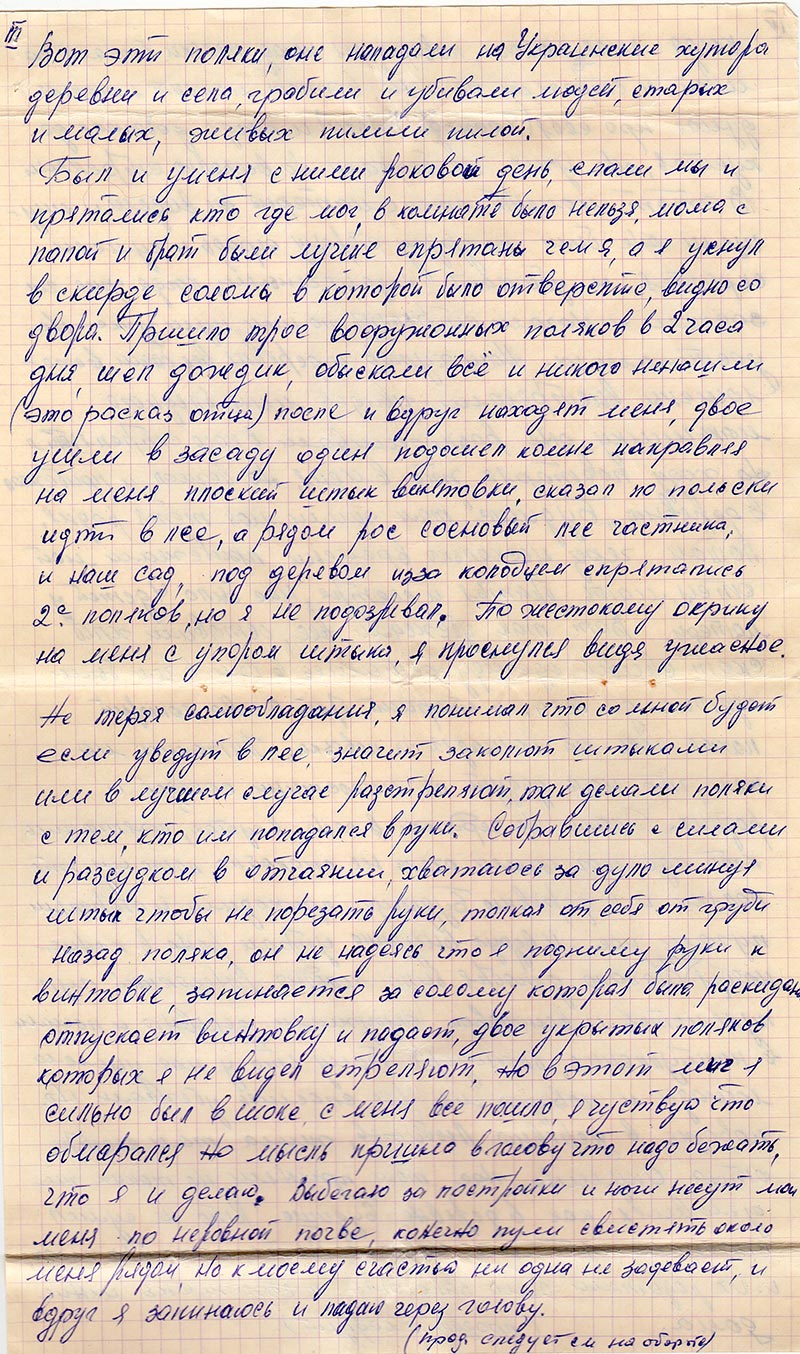 III
Вот эти поляки, оне нападали на Украинские хутора
деревни и села, грабили и убивали людей, старых
и малых, живых пилили пилой.
Был и уменя с ними роковой день, спали мы и
прятались кто где мог, в комнате было нельзя, мама с
папой и брат были лучше спрятаны чем я, а я уснул
в скирде соломы в которой было отверстие, видно со
двора. Пришло трое вооружонных поляков в 2 часа
дня, шел дождик, обыскали всё и никого ненашли
(это расказ отца) после и вдруг находят меня, двое
ушли в засаду один подошел комне направляя
на меня плоский штык винтовки, сказал по польски
идти в лес, а рядом рос сосновый лес частника,
и наш сад, под деревом изза колодцем спрятались
2е поляков, но я не подозревал. По жестокому окрику
на меня с упором штыка, я проснулся видя ужасное.
Не теряя самообладания, я понимал что со мной будет
если уведут в лес, значит заколют штыками
или в лучшем случае разстреляют, так делали поляки
с тем, кто им попадался в руки. Собравшись с силами
и разсудком в отчаянии, хватаюсь за дуло минуя
штык чтобы не порезать руки, толкая от себя от груди
назад поляка, он не надеясь что я подниму руки к
винтовке, запинается за солому которая была раскидана
отпускает винтовку и падает, двое укрытых поляков
которых я не видел стреляют. Но в этот миг я
сильно был в шоке, с меня все пошло, я чуствую что
обмарался но мысль пришла в голову что надо бежать,
что я и делаю. Выбегаю за постройки и ноги несут мои
меня по неровной почве, конечно пули свистять около
меня рядом, но к моему счастью ни одна не задевает, и
вдруг я запинаюсь и падаю через голову.
(прод. следует см на обороте)